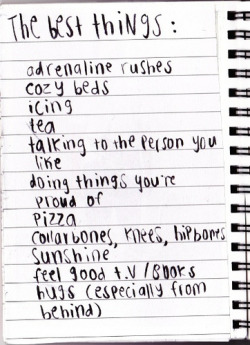 The best thiNgs:
adrenaline rushes
cozy beds
icing
tea
talking to the person you
like
doing things you're
proud of
pizza
collarbones, knees, hipbones
Sunshine
feel good t.v / books
hugs (especially from
behind)